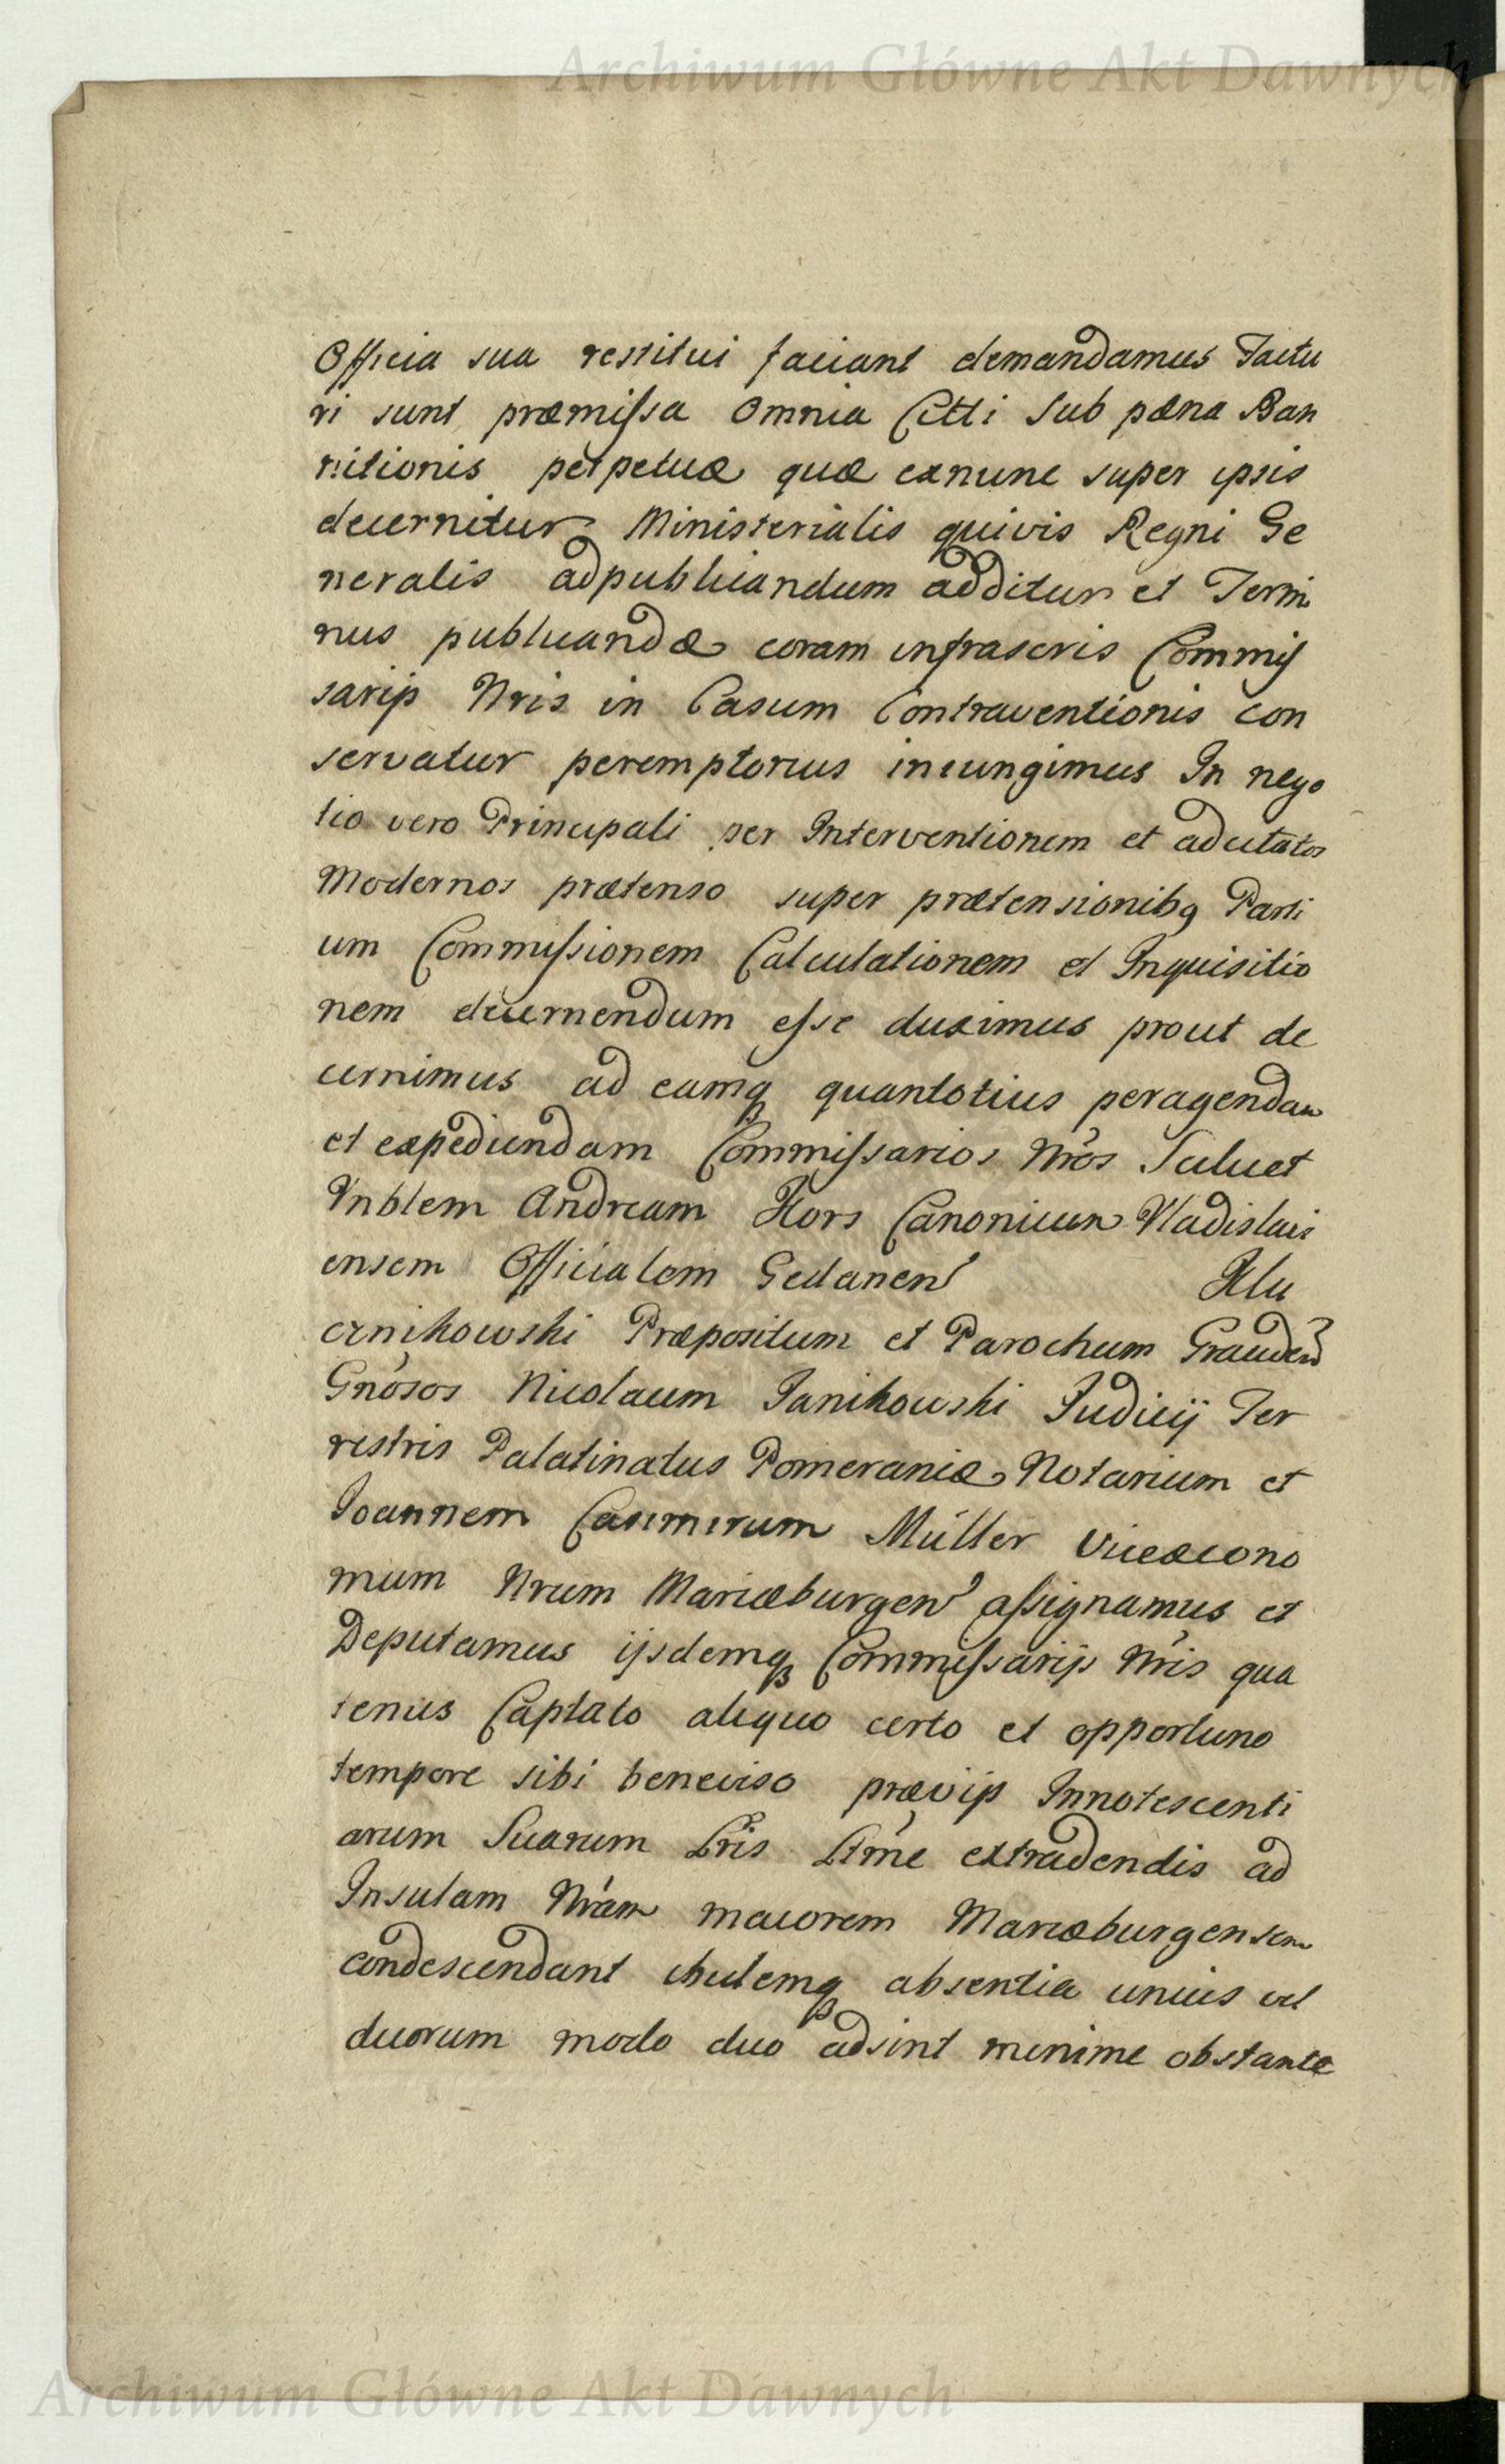 Archiwum Główne Akt Dawnych
Officia sua restitui faciant demandamus Factu
ri sunt præmissa Omnia Citti sub pæna Ban
nitionis perpetuæ quæ exnunc super ipsis
decernitur Ministerialis quivis Regni Ge
neralis ad publicandum additur et Termi
nus publicandæ coram infrascris Commis
sarijs Nris in Casum Contraventionis con
servatur peremptorius iniungimus In nego
tio vero Principali per Interventionem et adcitatos
Modernos prætenso super prætensionibq Parti
um Commissionem Calculationem et Inquisitio
nem decernendum esse duximus prout de
cernimus ad eamq quantotius peragendam
et expediundam Commissarios Nros Scilicet
Vnblem Andream Hors Canonicum Vladislavi
ensem Officialem Gedanen Klu
cznikowski Præpositum et Parochum Grauden
Gnosos Nicolaum Janikowski Judicij Ter
restris Palatinatus Pomeraniæ Notarium et
Joannem Casimirum Müller Viceæcono
mum Nrum Mariæburgen assignamus et
Deputamus ijsdemq Commissarijs Nris qua
tenus Captato aliquo certo et opportuno
tempore sibi beneviso prævijs Innotescenti
arum Suarum Lris Ltme extradendis ad
Insulam Nram maiorem Mariæburgensem
condescendant ibidemq absentia unius vel
duorum modo duo adsint minime obstante
Archiwum Główne Akt Dawnych